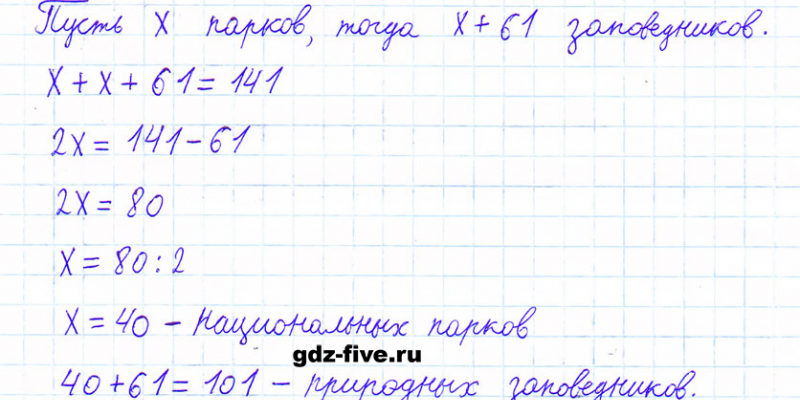 Пусть x парков, тогда x+61 заповедников.
x + x + 61 = 141
2x = 141 - 61
2x = 80
x = 80 : 2
x = 40 - национальных парков
gdz-five.ru
40 + 61 = 101 - природных заповедников.